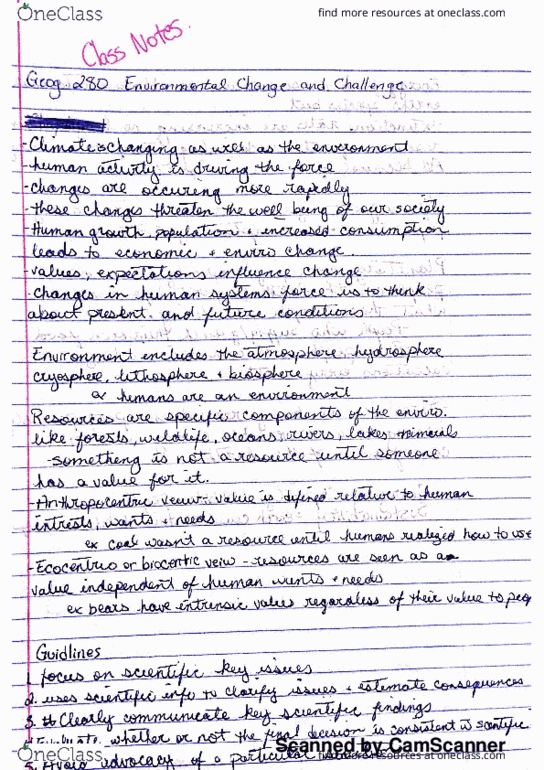 OneClass
find more resources at oneclass.com
Class Notes
Geog 280 Environmental Change and Challenge
-Climate is changing as well as the environment
-human activity is driving the force
-changes are occuring more rapidly
-these changes threaten the well being of our society
-Human growth, population + increased consumption
leads to economic + enviro change.
-values, expectations influence change
-changes in human systems force us to think
about present and future conditions
Environment encludes the atmosphere, hydrosphere
cryosphere, lithosphere + biosphere
humans are an environment
Resources are specific components of the enviro.
like forests, wildlife, oceans rivers, lakes mineral
-something is not a resource until someone
has a value for it.
-Anthropocentric veiw- value is defined relative to human
intrests, wants + needs
ex coal wasn't a resource until humans realized how to use
-Ecocentric or biocentric veiw - resources are seen as a
value independent of human wants + needs
ex bears have intrensic values regardless of their value to peop
Guidlines
1. focus on scientific key issues
2. uses scientific info to clarify issues + estimate consequences
3. Clearly communicate key scientific findings
whether or not the final decision is consistent w scientific
5. Avoid advocacy of a particular
OneClass
Scanned by CamScanner
find more resources at oneclass.com